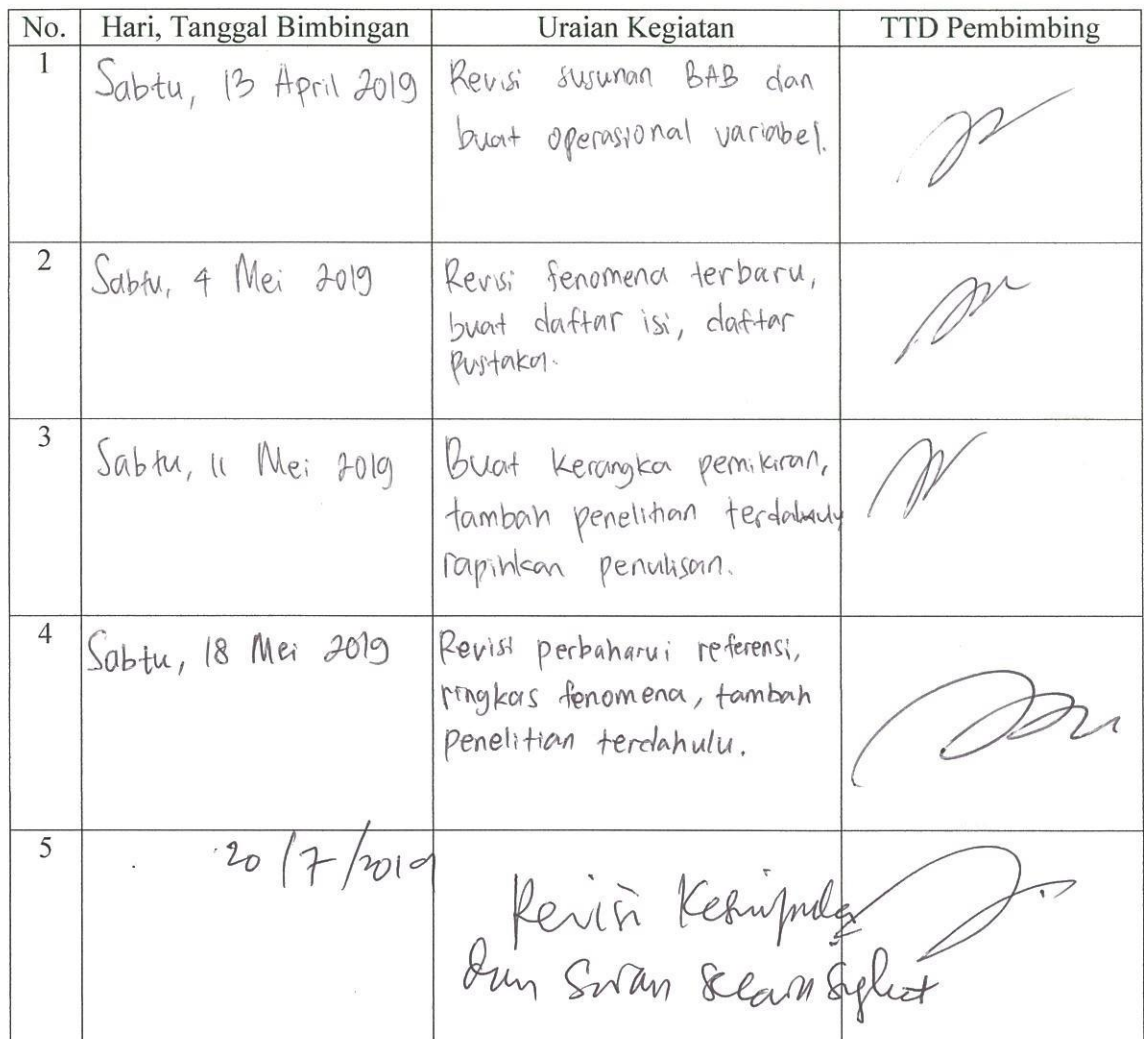 No. Hari, Tanggal Bimbingan Uraian Kegiatan TTD Pembimbing
1 Sabtu, 13 April 2019 Revisi susunan BAB dan
buat operasional variabel.
2 Sabtu, 4 Mei 2019 Revisi fenomena terbaru,
buat daftar isi, daftar
pustaka.
3 Sabtu, 11 Mei 2019 Buat kerangka pemikiran,
tambah penelitian terdahulu
rapihkan penulisan.
4 Sabtu, 18 Mei 2019 Revisi perbaharui referensi,
ringkas fenomena, tambah
penelitian terdahulu.
5 20/7/2019
Revisi
dan Saran